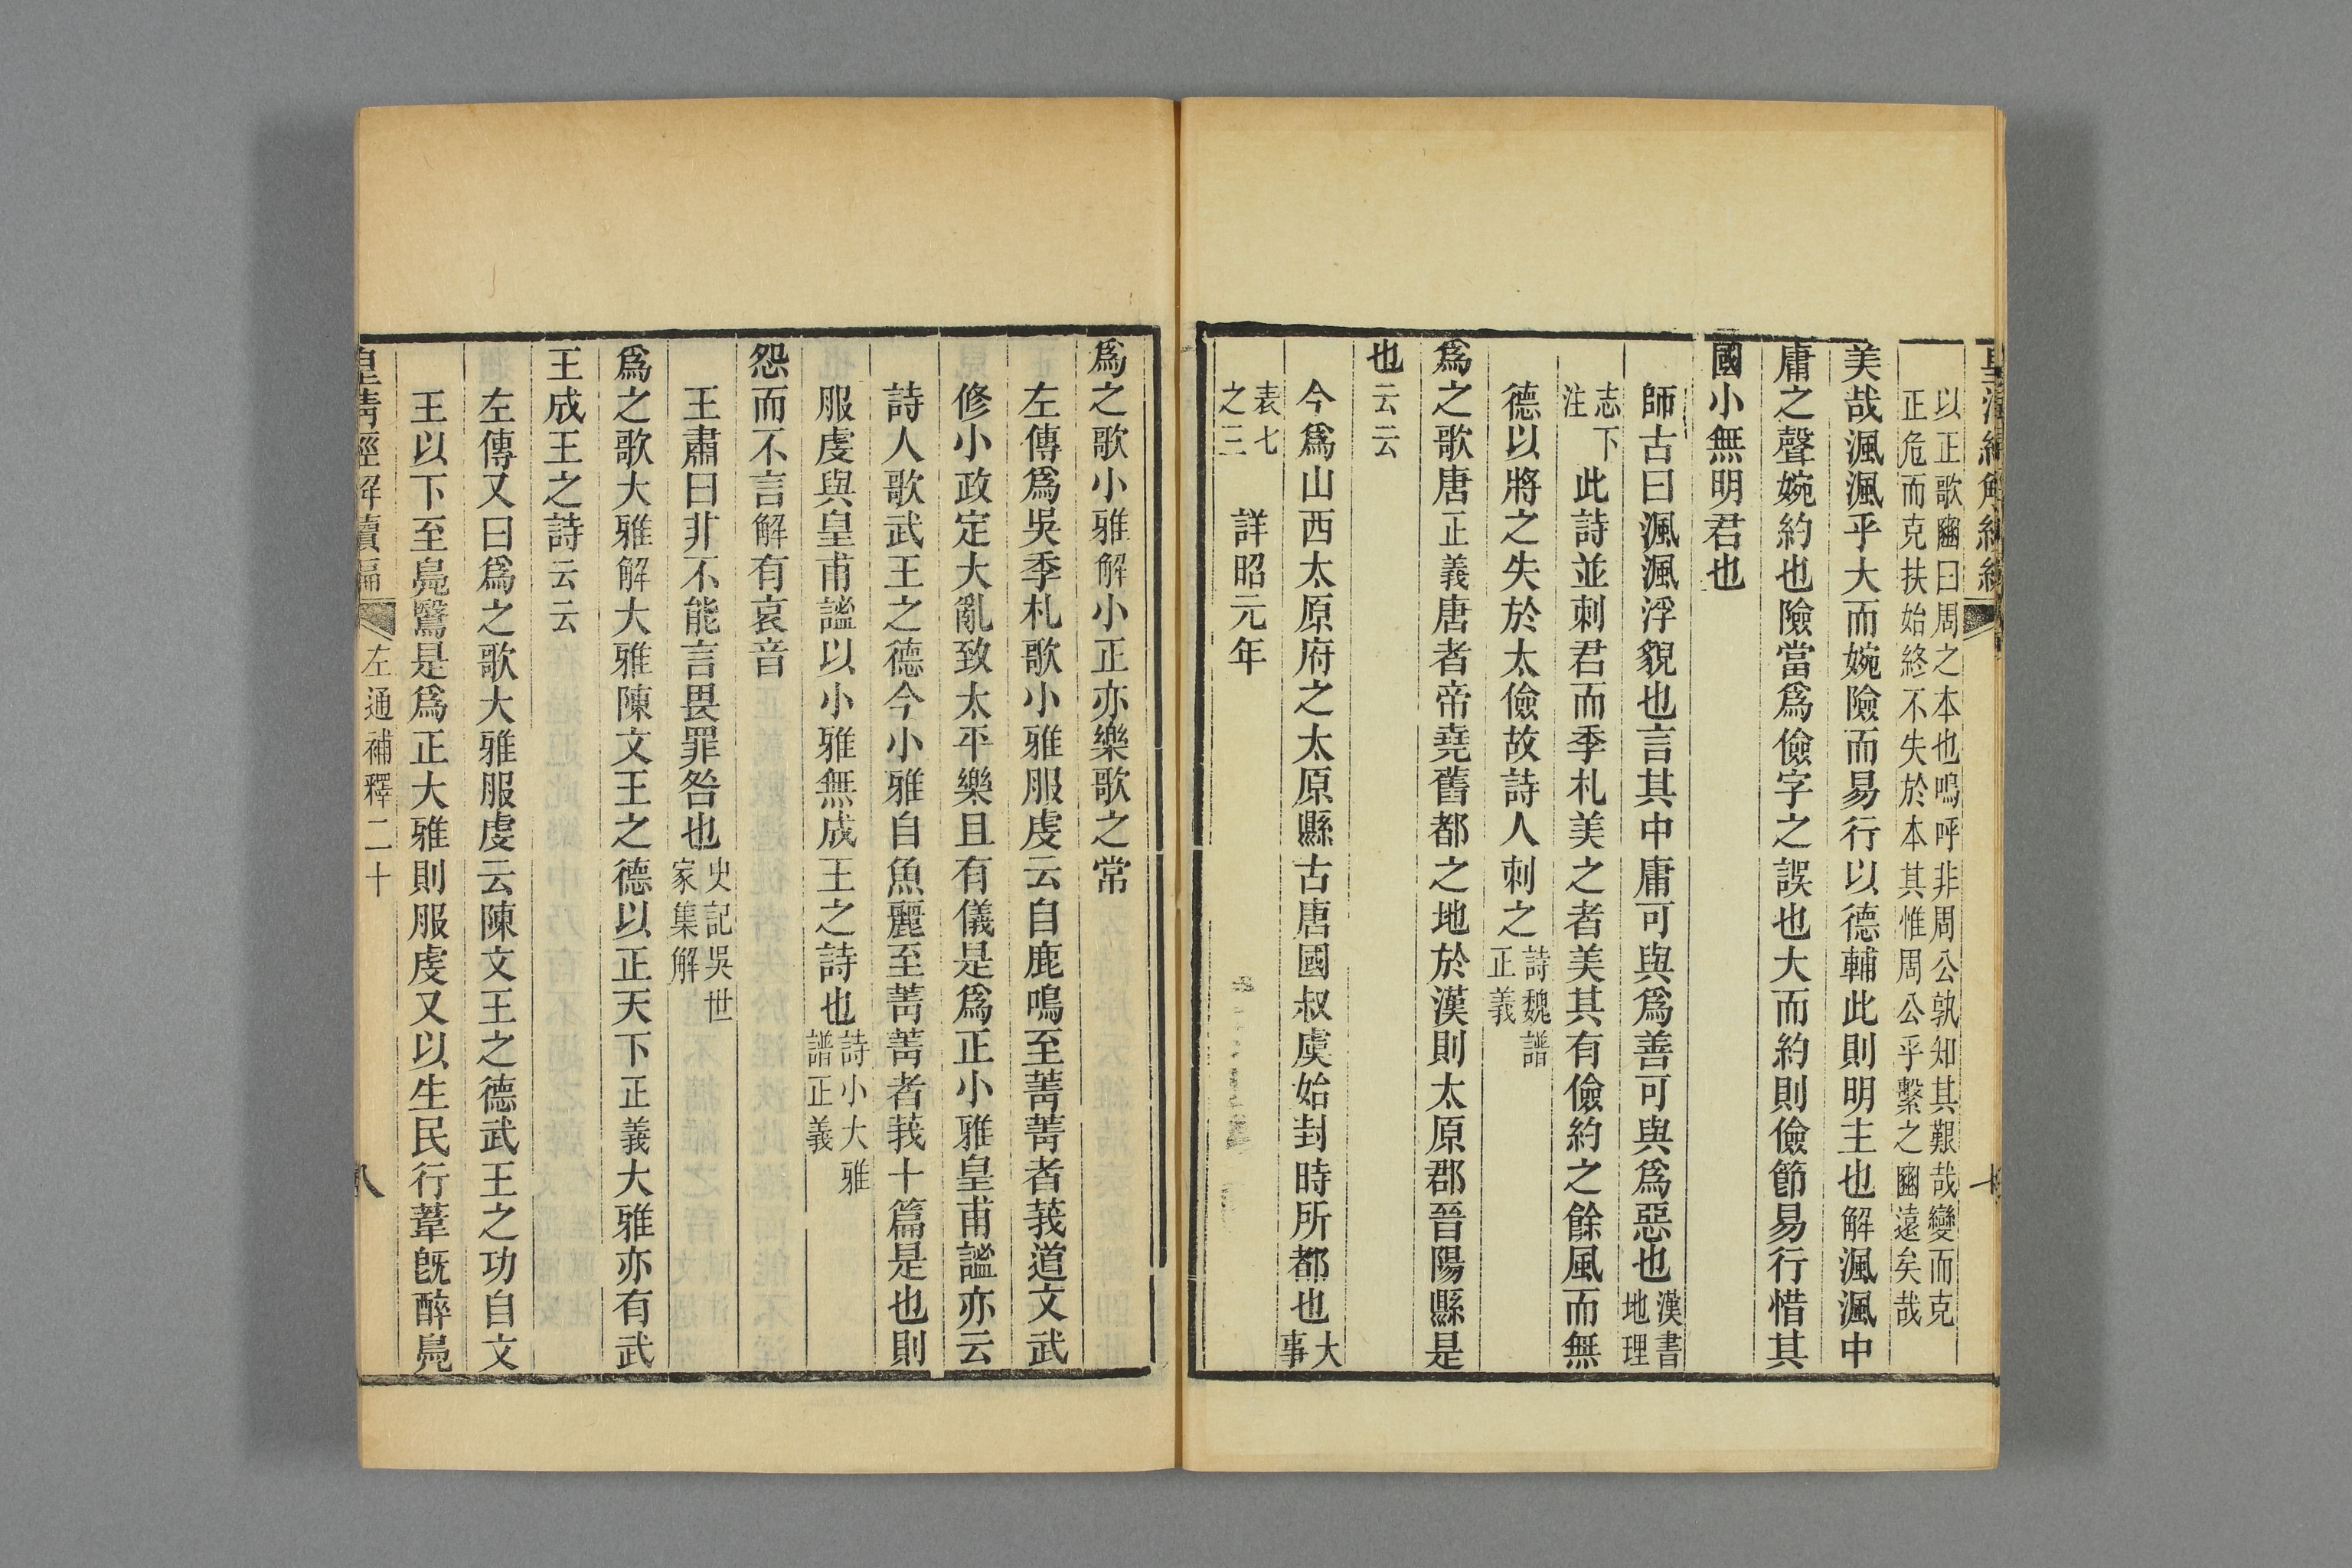 以正歌豳曰周之本也嗚呼非周公孰知其艱哉變而克
正危而克扶始終不失於本其惟周公乎繫之豳遠矣哉
美哉渢渢乎大而婉險而易行以德輔此則明主也解渢渢中
庸之聲婉約也險當爲儉字之誤也大而約則儉節易行惜其
國小無明君也
師古曰渢渢浮貌也言其中庸可與爲善可與爲惡也漢書地理
志下注此詩並刺君而季札美之者美其有儉約之餘風而無
德以將之失於太儉故詩人刺之詩魏譜正義
爲之歌唐正義唐者帝堯舊都之地於漢則太原郡晉陽縣是
也云云
今爲山西太原府之太原縣古唐國叔虞始封時所都也大事
表七之三詳昭元年
爲之歌小雅解小正亦樂歌之常
左傳爲吳季札歌小雅服虔云自鹿鳴至菁菁者莪道文武
修小政定大亂致太平樂且有儀是爲正小雅皇甫謐亦云
詩人歌武王之德今小雅自魚麗至菁菁者莪十篇是也則
服虔與皇甫謐以小雅無成王之詩也詩小大雅譜正義
怨而不言解有哀音
王肅曰非不能言畏罪咎也史記吳世家集解
爲之歌大雅解大雅陳文王之德以正天下正義大雅亦有武
王成王之詩云云
左傳又曰爲之歌大雅服虔云陳文王之德武王之功自文
王以下至鳧鷖是爲正大雅則服虔又以生民行葦旣醉鳧
皇清經解續編
左通補釋二十
八